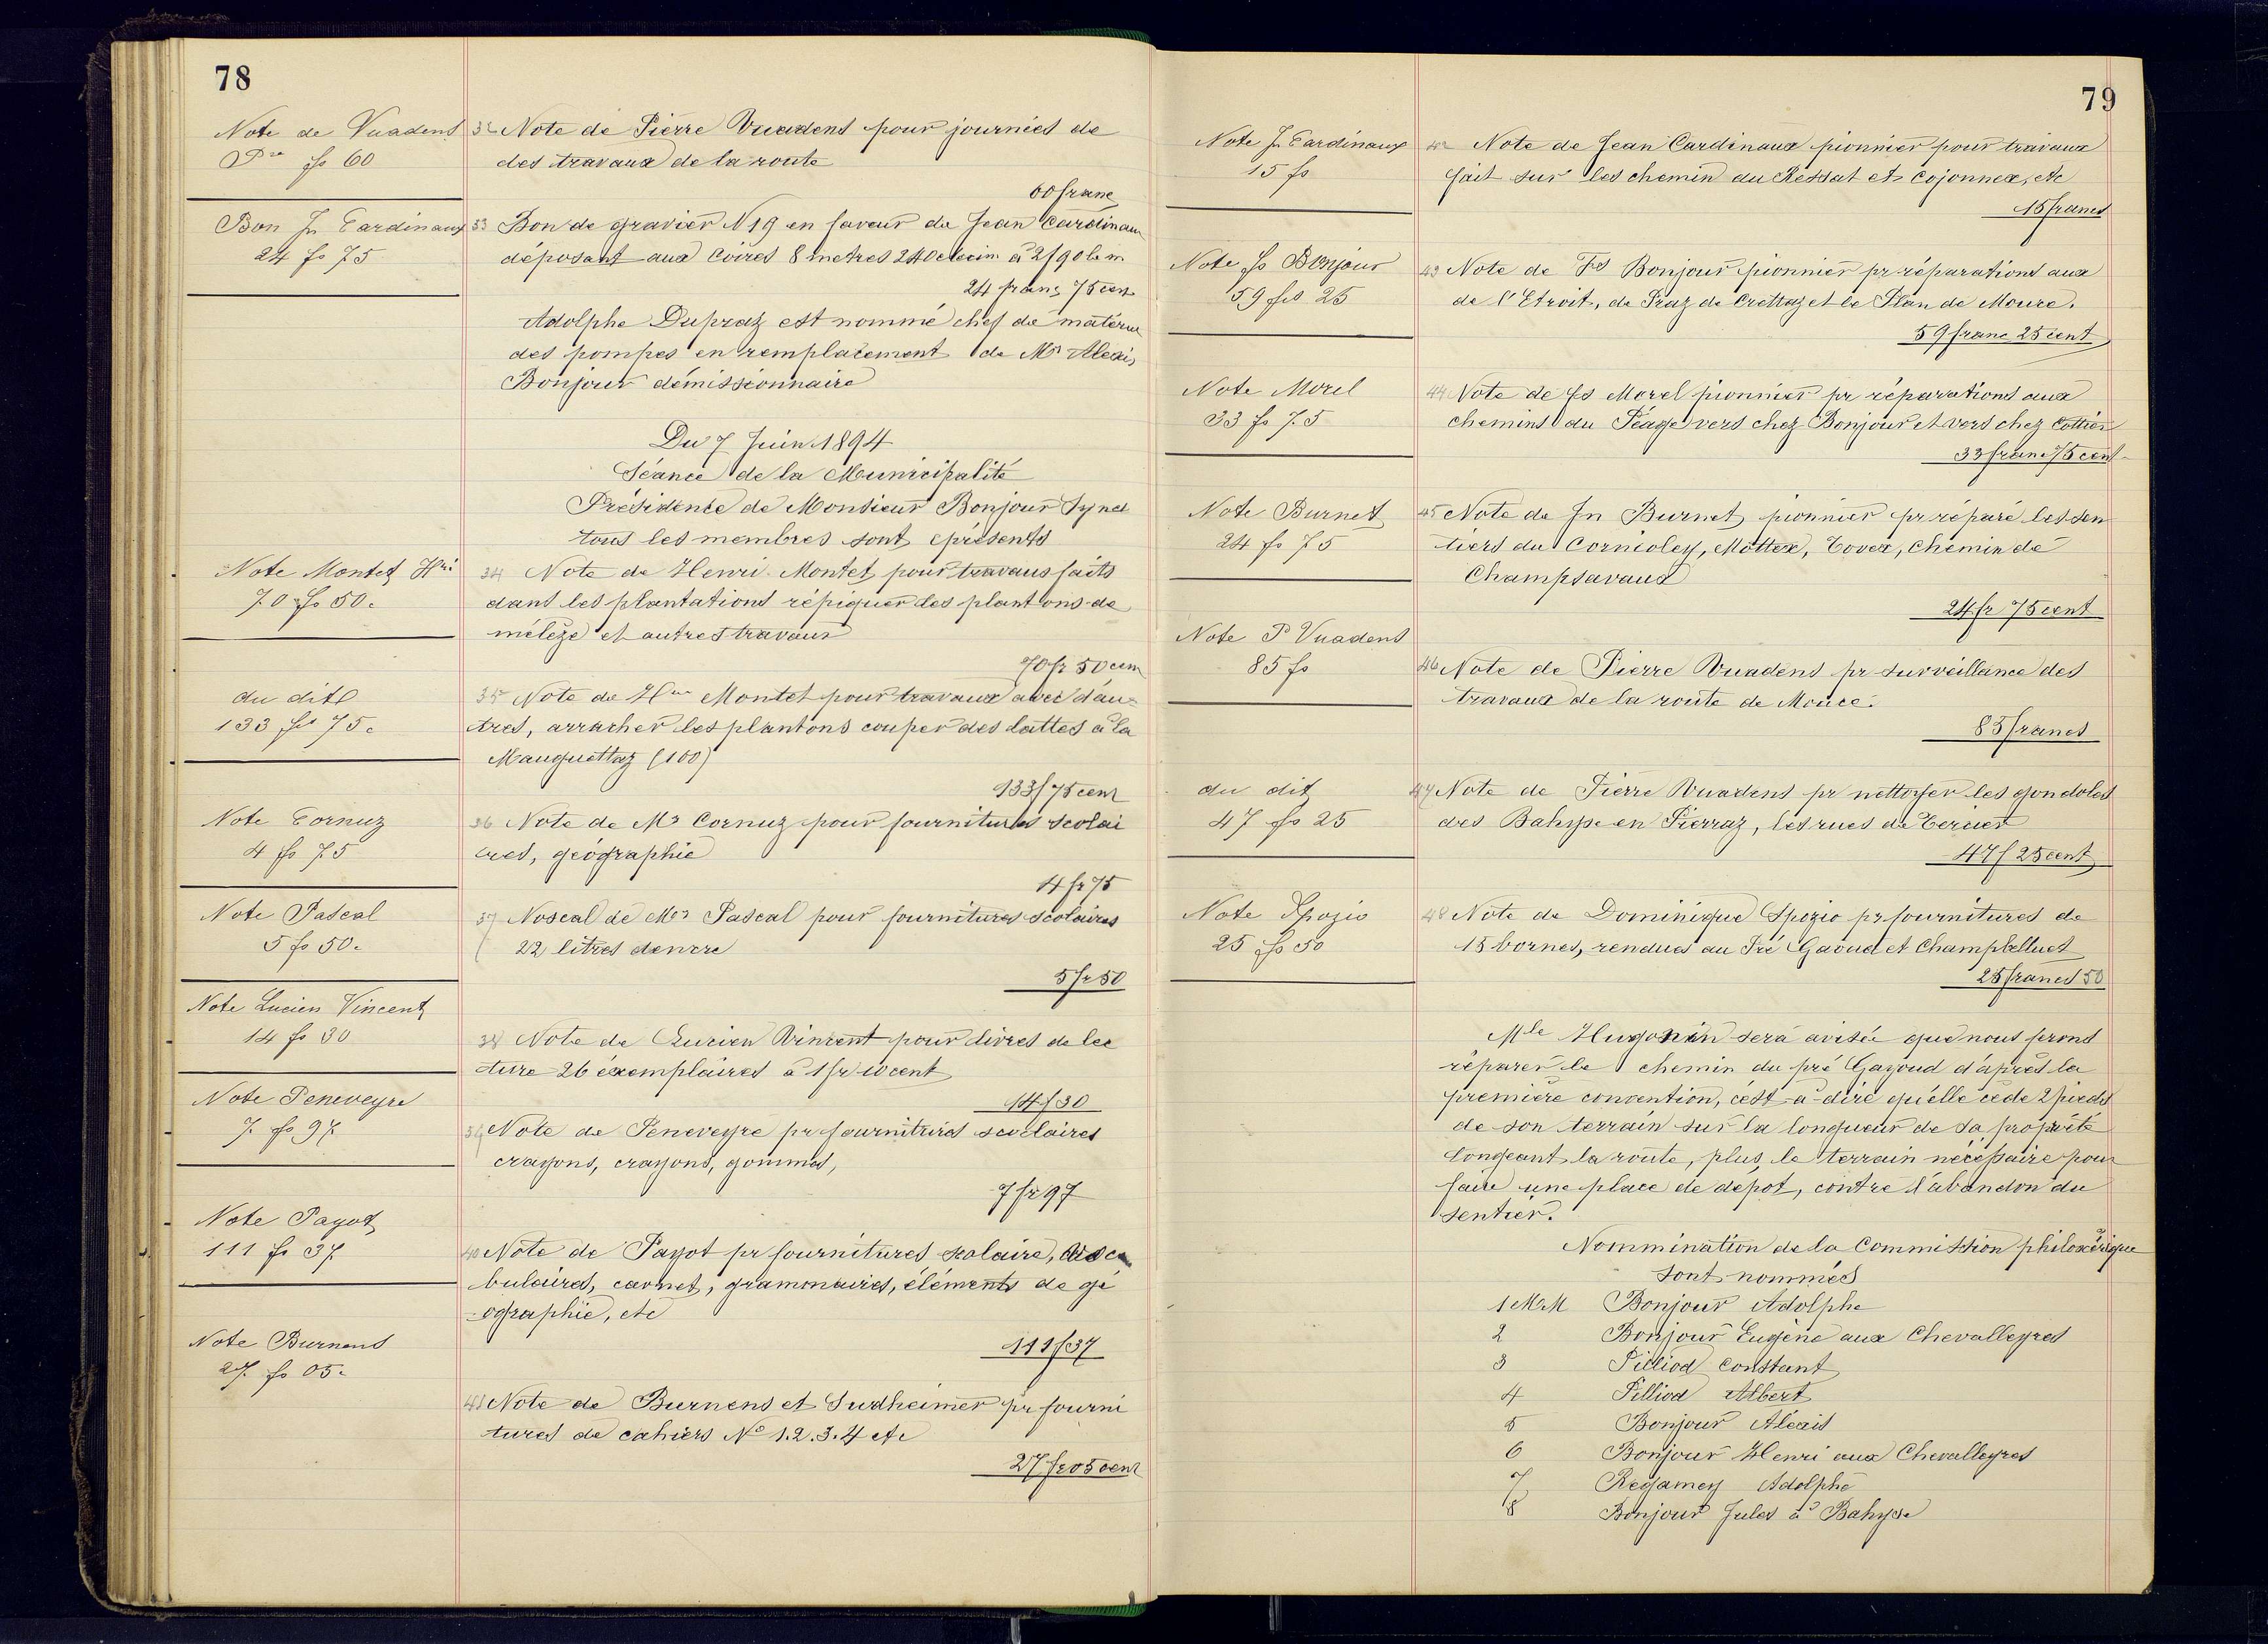 78
Note de Vuadens
Pre fs 60
32 Note de Pierre Vuadens pour journées de
des travaux de la route
60 franc
Bon Jn Cardinaux
24 fs 75
33 Bon de gravier N 19 en faveur de Jean Cardinau
déposant aux Coires 8 metres 240 decim à 2f90 le m
24 franc 75 cent
Adolphe Dupraz est nommé chef de materiel
des pompes en remplacement de Mr Alexis
Bonjour démissionnaire
Du 7 Juin 1894
Séance de la Municipalité
Présidence de Monsieur Bonjour Synd
tous les membres sont présents
Note Montet Hri
70 fs 50.
34 Note de Henri Montet pour travaus faits
dans les plantations répiquer des plantons de
mélèze et autres travaux
70 fr 50 cem
du dit
133 fs 75.
35 Note de Hri Montet pour travaux avec d'au-
tres, arracher les plantons couper des lattes à la
Mauguettaz (100)
133f 75 cent
Note Cornuz
4 fs 75
36 Note de Mr Cornuz pour fournitures scolai
res, géographie
4 fr 75
Note Pascal
5 fs 50.
37 Noscal de Mr Pascal pour fournitures scolaires
22 litres dencre
5 fr 50
Note Lucien Vincent
14 fs 30
38 Note de Lucien Vincent pour livres de lec
ture 26 éxemplaires à 1 fr 10 cent
14f30
Note Peneveyre
7 fs 97
39 Note de Peneveyre pr fournitures scolaires
crayons, crayons, gommes,
7 fr 97
Note Payot
111 fs 37
40 Note de Payot pr fournitures scolaire,
bulaires, carnet, grammaires, éléments de gé
ographie, etc
111f37
Note Burnens
27 fs 05.
41 Note de Burnens et Surdheimer pr fourni
tures de cahiers No 1.2.3.4 etc
27 fr 05 cent
79
Note Jn Cardinaux
15 fs
42 Note de Jean Cardinaux pionnier pour travaux
fait sur les chemin du Ressat et Cojonnex, etc
15 francs
Note fs Bonjour
59 fcs 25
43 Note de Fs Bonjour pionnier pr réparations aux
de l'Etroit, de Praz de Crettaz et le Plan de Moure.
59 franc 25 cent
Note Morel
33 fs 75
44 Note de fs Morel pionnier pr réparations aux
chemins du Péage vers chez Bonjour et vers chez Cottier
33 franc 75 cent
Note Burnet
24 fs 75
45 Note de Jn Burnet pionnier pr réparé les sen
tiers du Cornioley, Mottex, Tovex, chemin de
Champsavaux
24 fr 75 cent
Note P Vuadens
85 fs
46 Note de Pierre Vuadens pr surveillance des
travaux de la route de Mouce.
85 francs
du dit
47 fs 25
47 Note de Pierre Vuadens pr nettoyer les gondoles
des Bahyse en Pierraz, les rues de Tercier
47f 25 cent
Note Spozio
25 fs 50
48 Note de Dominique Spozio pr fournitures de
15 bornes, rendues au Pré Gaoud et Champbelluet
25 francs 50
Mle Hugonin sera avisée que nous ferons
réparer le chemin du pré Gayoud d'après la
première convention, c'est-à-dire qu'elle cède 2 pieds
de son terrain sur la longueur de sa propriété
longeant la route, plus, le terrain nécessaire pour
faire une place de depot, contre l'abandon du
sentier.
Nommination de la Commission philoxérique
sont nommés
1 MrM Bonjour Adolphe
2 Bonjour Eugène aux Chevalleyres
3 Pilliod Constant
4 Pilliod Albert
5 Bonjour Aléxis
6 Bonjour Henri aux Chevalleyres
7 Regamey Adolphe
8 Bonjour Jules à Bahyse